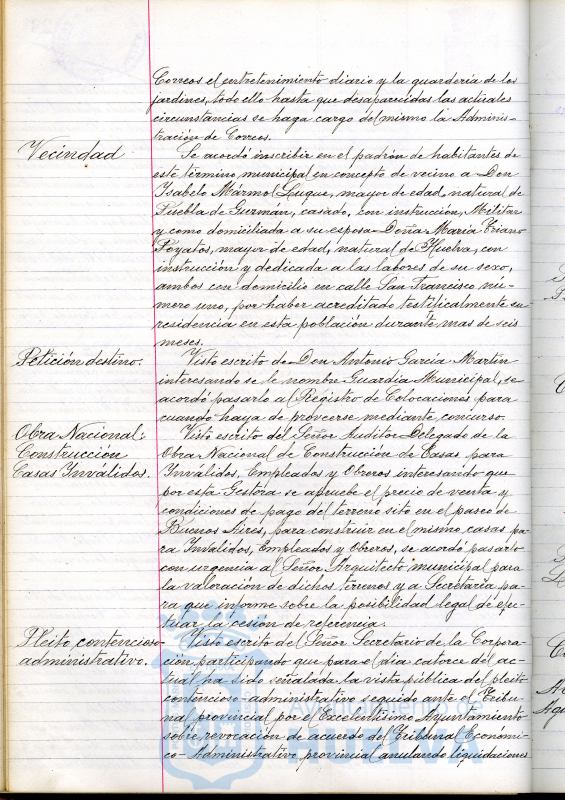 Correos el entretenimiento diario y la guardería de los
jardines, todo ello hasta que desaparecidas las actuales
circunstancias se haga cargo del mismo la Adminis-
tración de Correos.
Vecindad
Se acordó inscribir en el padrón de habitantes de
este término municipal en concepto de vecino a Don
Ysabelo Mármol Luque, mayor de edad, natural de
Puebla de Guzmán, casado, con instrucción, Militar
y como domiciliada a su esposa Doña María Triano
Poyatos, mayor de edad, natural de Huelva, con
instrucción y dedicada a las labores de su sexo,
ambos con domicilio en calle San Francisco nú-
mero uno, por haber acreditado testificalmente su
residencia en esta población durante mas de seis
meses.
Petición destino.
Visto escrito de Don Antonio García Martín
interesando se le nombre Guardia Municipal, se
acordó pasarlo al Registro de Colocaciones para
cuando haya de proveerse mediante concurso.
Obra Nacional:
Construcción
Casas Inválidos.
Visto escrito del Señor Auditor Delegado de la
Obra Nacional de Construcción de Casas para
Inválidos, Empleados y Obreros interesando que
por esta Gestora se apruebe el precio de venta y
condiciones de pago del terreno sito en el paseo de
Buenos Aires, para construir en el mismo casas pa-
ra Inválidos, Empleados y Obreros, se acordó pasarlo
con urgencia al Señor Arquitecto municipal para
la valoración de dichos terrenos y a Secretaría pa-
ra que informe sobre la posibilidad legal de efec-
tuar la cesión de referencia.
Pleito contencioso-
administrativo.
Visto escrito del Señor Secretario de la Corpora-
ción, participando que para el día catorce del ac-
tual ha sido señalada la vista pública del pleito
contencioso-administrativo seguido ante el Tribu-
nal provincial por el Excelentísimo Ayuntamiento
sobre revocación de acuerdo del Tribunal Económi-
co-Administrativo provincial anulando liquidaciones
Ayuntamiento de
HUELVA